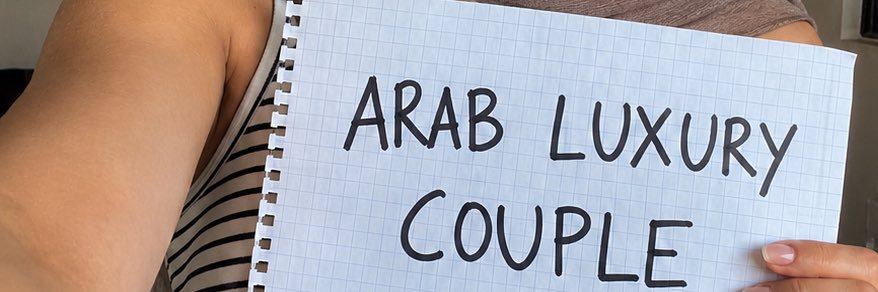 ARAB LUXURY
COUPLE